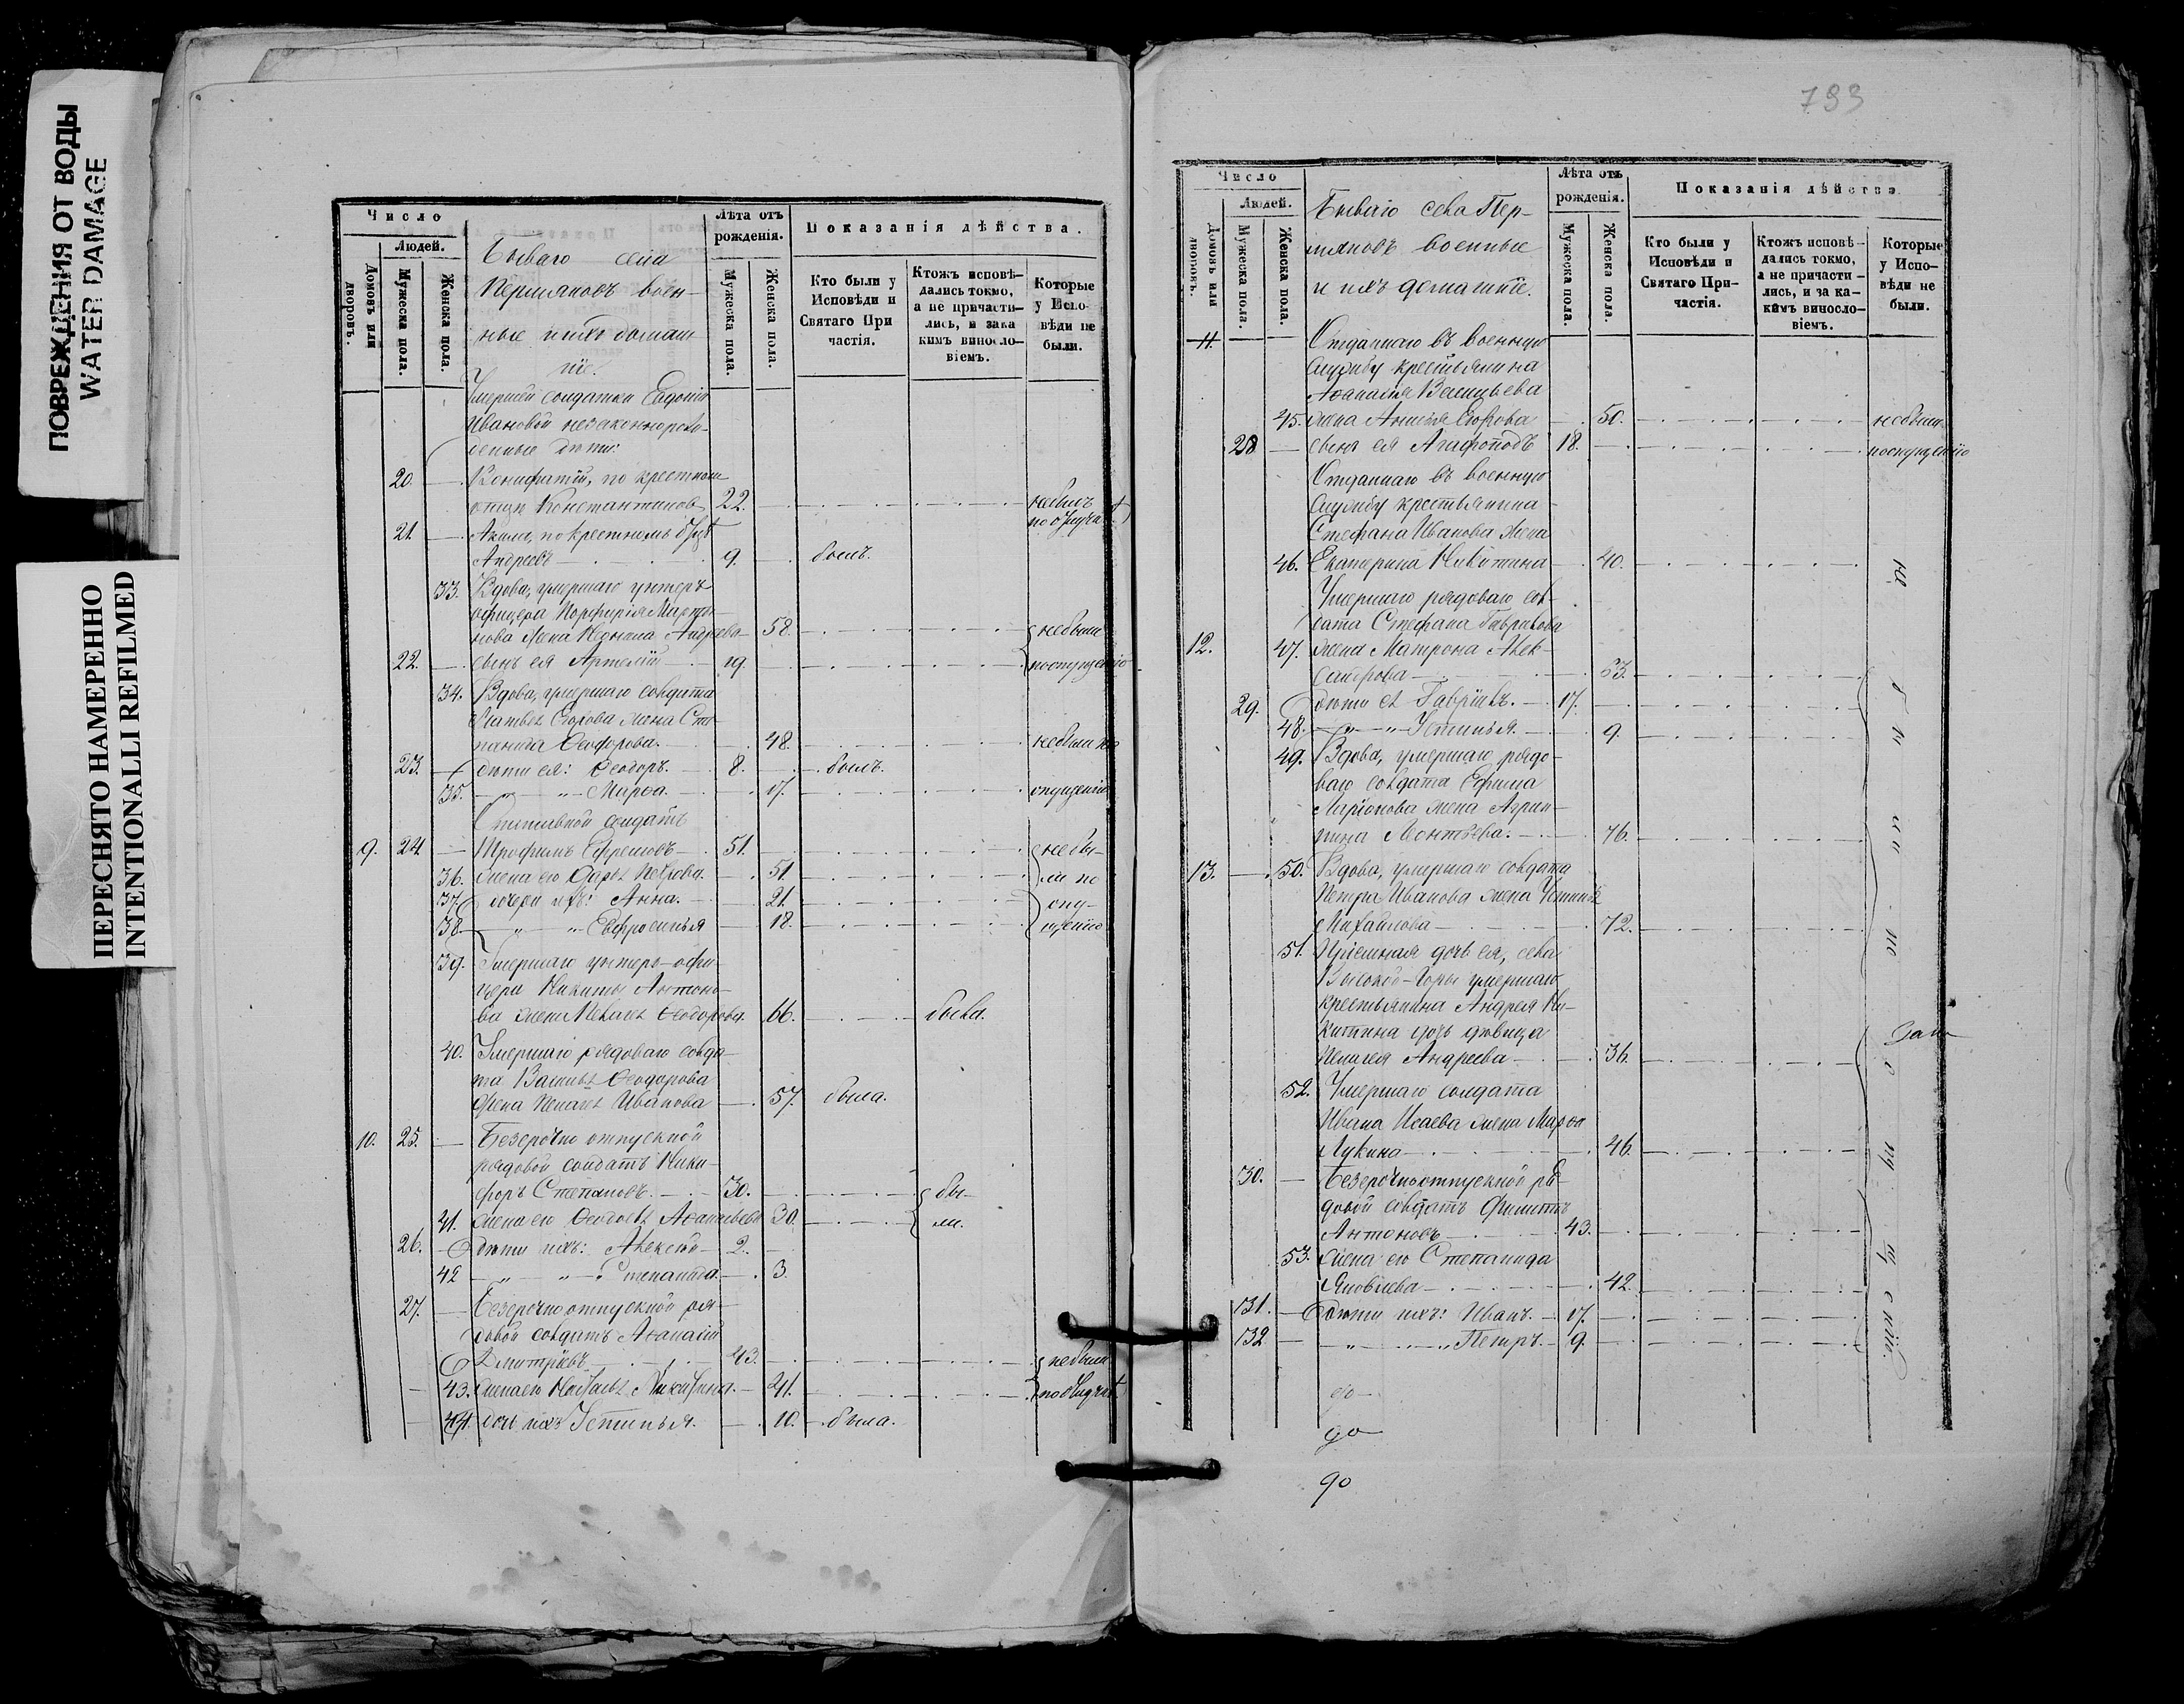 ПОВРЕЖДЕНИЯ ОТ ВОДЫ
WATER DAMAGE
ПЕРЕСНЯТО НАМЕРЕННО
INTENTIONALLI REFILMED
Число
Людей.
Домовъ или дворовъ.
Мужеска пола.
Женска пола.
Бывшаго села
Пермяковъ воен-
ные и ихъ домаш
ніе.
Лѣта отъ
рожденія.
Мужеска пола.
Женска пола.
Показанія дѣйства.
Кто были у
Исповѣди и
Святаго При
частія.
Ктожъ исповѣ-
дались токмо,
а не причасти-
лись, и за ка
кимъ винословіемъ.
Которые
у Испо-
вѣди не
были.
Умершей солдатки Евдокіи
Ивановой незаконнорож-
денные дѣти:
20. Вонифатій, по крестному
отцу Константиновъ 22. небылъ
по отлуч.
21. Акила, по крестному отцѣ
Андреевъ 9. былъ.
33. Вдова, умершаго унтеръ
офицера Порфирія Марты-
нова жена Неонила Андреева 58. небыли
22. сынъ ея Артемій 19. поопущенію
34. Вдова, умершаго солдата
Матвея Егорова жена Сте-
панида Ѳеодорова. 48. небыли по
23. дѣти ея: Ѳеодоръ. 8. былъ.
35. " " Марѳа. 17. опущенію
Отставной солдатъ
9. 24. Трофимъ Ефремовъ 51. небы-
36. жена его Дарья Петрова. 51. ли по
37. дочери ихъ: Анна. 21. опу-
38. " " Евфросинья 18. щенію
39. Умершаго унтеръ-офи-
цера Никиты Антоно-
ва жена Пелагея Ѳеодорова. 66. была.
40. Умершаго рядоваго солда-
та Василья Ѳеодорова
жена Пелагея Иванова 57. была.
10. 25. Безсрочно отпускной
рядовой солдатъ Ники-
форъ Степановъ. 30. бы-
41. жена его Ѳеодосья Аѳанасьева 30. ли.
26. дѣти ихъ: Алексѣй 2.
42 " " Степанида. 3.
27. Безсрочно отпускной ря-
довой солдатъ Аѳанасій
Дмитріевъ 43. небыли
43. жена его Наталья Никитина. 41.
44. дочь ихъ Устинья. 10. была.
793
Число
Людей.
Домовъ или дворовъ.
Мужеска пола.
Женска пола.
Бывшаго села Пер-
мяковъ военные
и ихъ домашніе.
Лѣта отъ
рожденія.
Мужеска пола.
Женска пола.
Показанія дѣйства.
Кто были у
Исповѣди и
Святаго При-
частія.
Ктожъ исповѣ-
дались токмо,
а не причасти-
лись, и за ка-
кимъ виносло-
віемъ.
Которые
у Испо-
вѣди не
были.
11. Отданнаго въ военную
службу крестьянина
Аѳанасія Васильева
45. жена Анисья Егорова 50. небыли
28 сынъ ея Агафоподъ 18. поопущенію
Отданнаго въ военную
службу крестьянина
Стефана Иванова жена
46. Екатерина Никитина 40.
Умершаго рядоваго сол-
дата Стефана Гаврилова
12. 47. жена Матрона Алек-
сандрова 53.
29. дѣти ея Гавріилъ. 17.
48. " " Устинья. 9.
49. Вдова, умершаго рядо-
ваго солдата Ефима
Ларіонова жена Агрип-
пина Леонтьева. 76.
13. 50. Вдова, умершаго солдата
Петра Иванова жена Устинья
Михайлова 72.
51. Пріемная дочь ея, села
Высокой-Горы умершаго
крестьянина Андрея Ни-
китина дочь дѣвица
Пелагея Андреева 36.
52. Умершаго солдата
Ивана Исаева жена Марѳа
Лукина 46.
30. Безсрочноотпускной ря-
довой солдатъ Филиппъ
Антоновъ 43.
53. жена его Степанида
Яковлева 42.
31. дѣти ихъ: Иванъ. 17.
32 " " Петръ. 9.